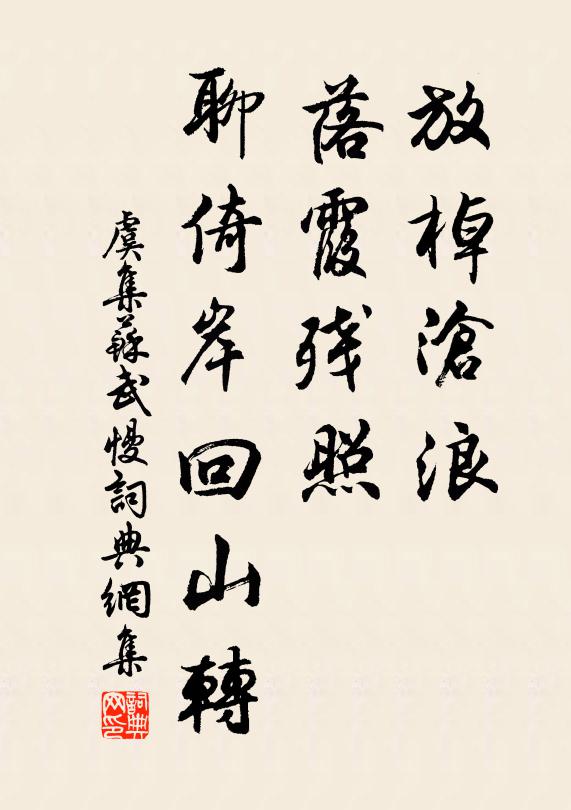 放棹滄浪
落霞残照
聊倚岸回山轉
虞集蘇武慢詞典網集
詞典网印